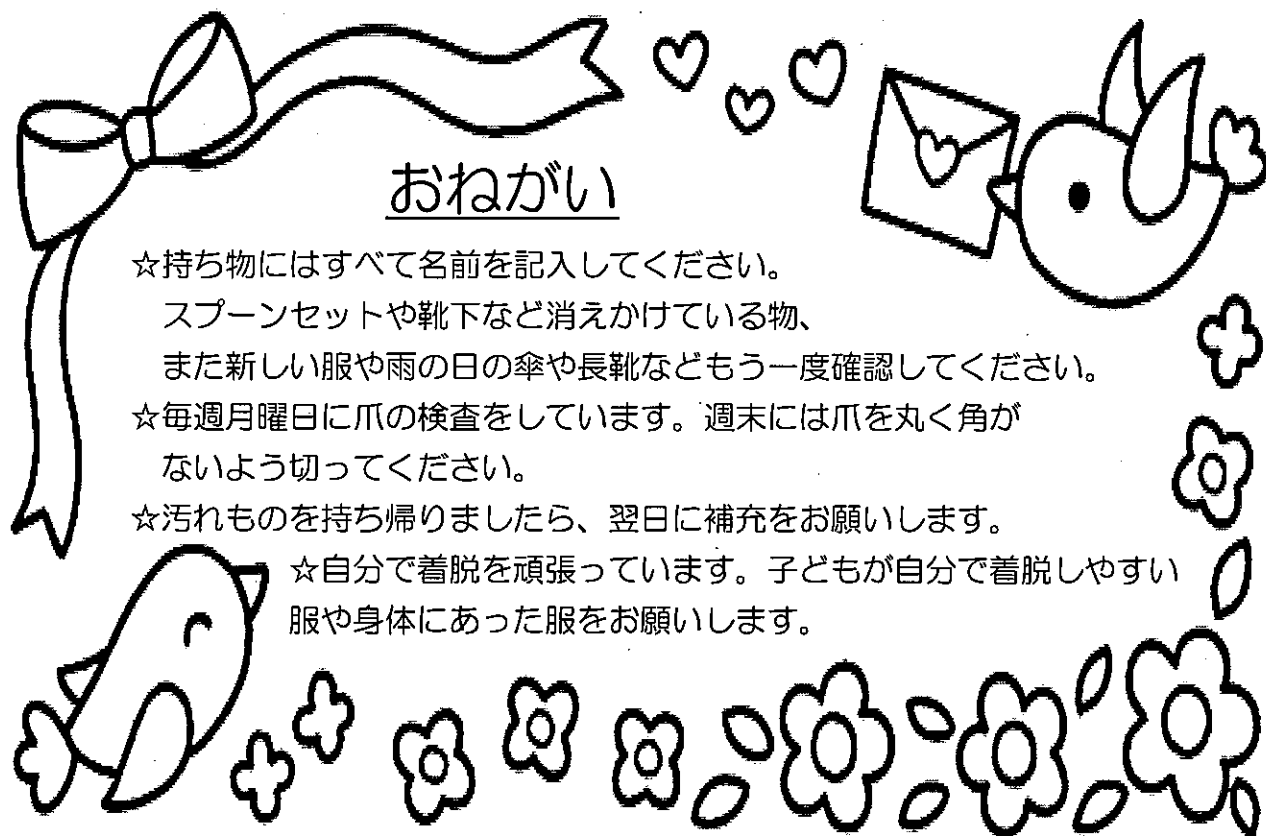 おねがい
☆持ち物にはすべて名前を記入してください。
スプーンセットや靴下など消えかけている物、
また新しい服や雨の日の傘や長靴などもう一度確認してください。
☆毎週月曜日に爪の検査をしています。週末には爪を丸く角が
ないよう切ってください。
☆汚れものを持ち帰りましたら、翌日に補充をお願いします。
☆自分で着脱を頑張っています。子どもが自分で着脱しやすい
服や身体にあった服をお願いします。